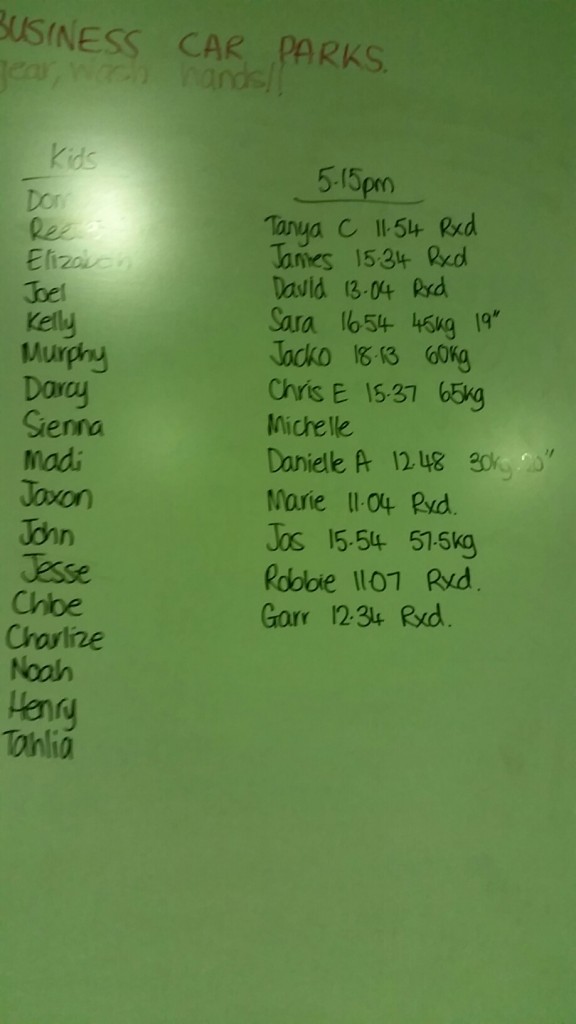 BUSINESS CAR PARKS.
gear, wash hands!!
Kids
Dom
Reese
Elizabeth
Joel
Kelly
Murphy
Darcy
Sienna
Madi
Jaxon
John
Jesse
Chloe
Charlize
Noah
Henry
Tahlia
5.15pm
Tanya C 11.54 Rxd
James 15.34 Rxd
David 13.04 Rxd
Sara 16.54 45kg 19"
Jacko 18.13 60kg
Chris E 15.37 65kg
Michelle
Danielle A 12.48 30kg 20"
Marie 11.04 Rxd.
Jas 15.54 57.5kg
Robbie 1107 Rxd.
Garr 12.34 Rxd.